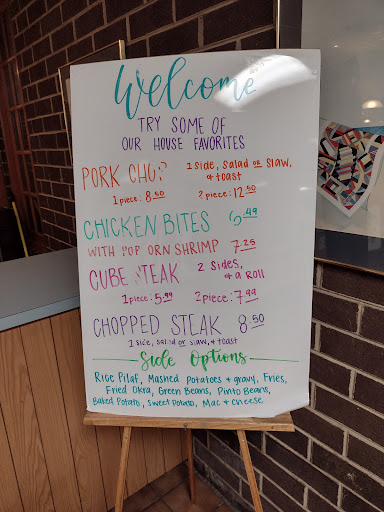 Welcome
TRY SOME OF
OUR HOUSE FAVORITES
PORK CHOP 1 side, salad or slaw,
& toast
1 piece: 8.50 2 piece: 12.50
CHICKEN BITES 6.49
WITH POP ORN SHRIMP 7.25
CUBE STEAK 2 sides,
& a Roll
1 piece: 5.99 2 piece: 7.99
CHOPPED STEAK 8.50
1 side, salad or slaw, & toast
Side Options
Rice Pilaf, Mashed Potatoes & gravy, Fries,
Fried Okra, Green Beans, Pinto Beans,
Baked Potato, Sweet Potato, Mac & Cheese